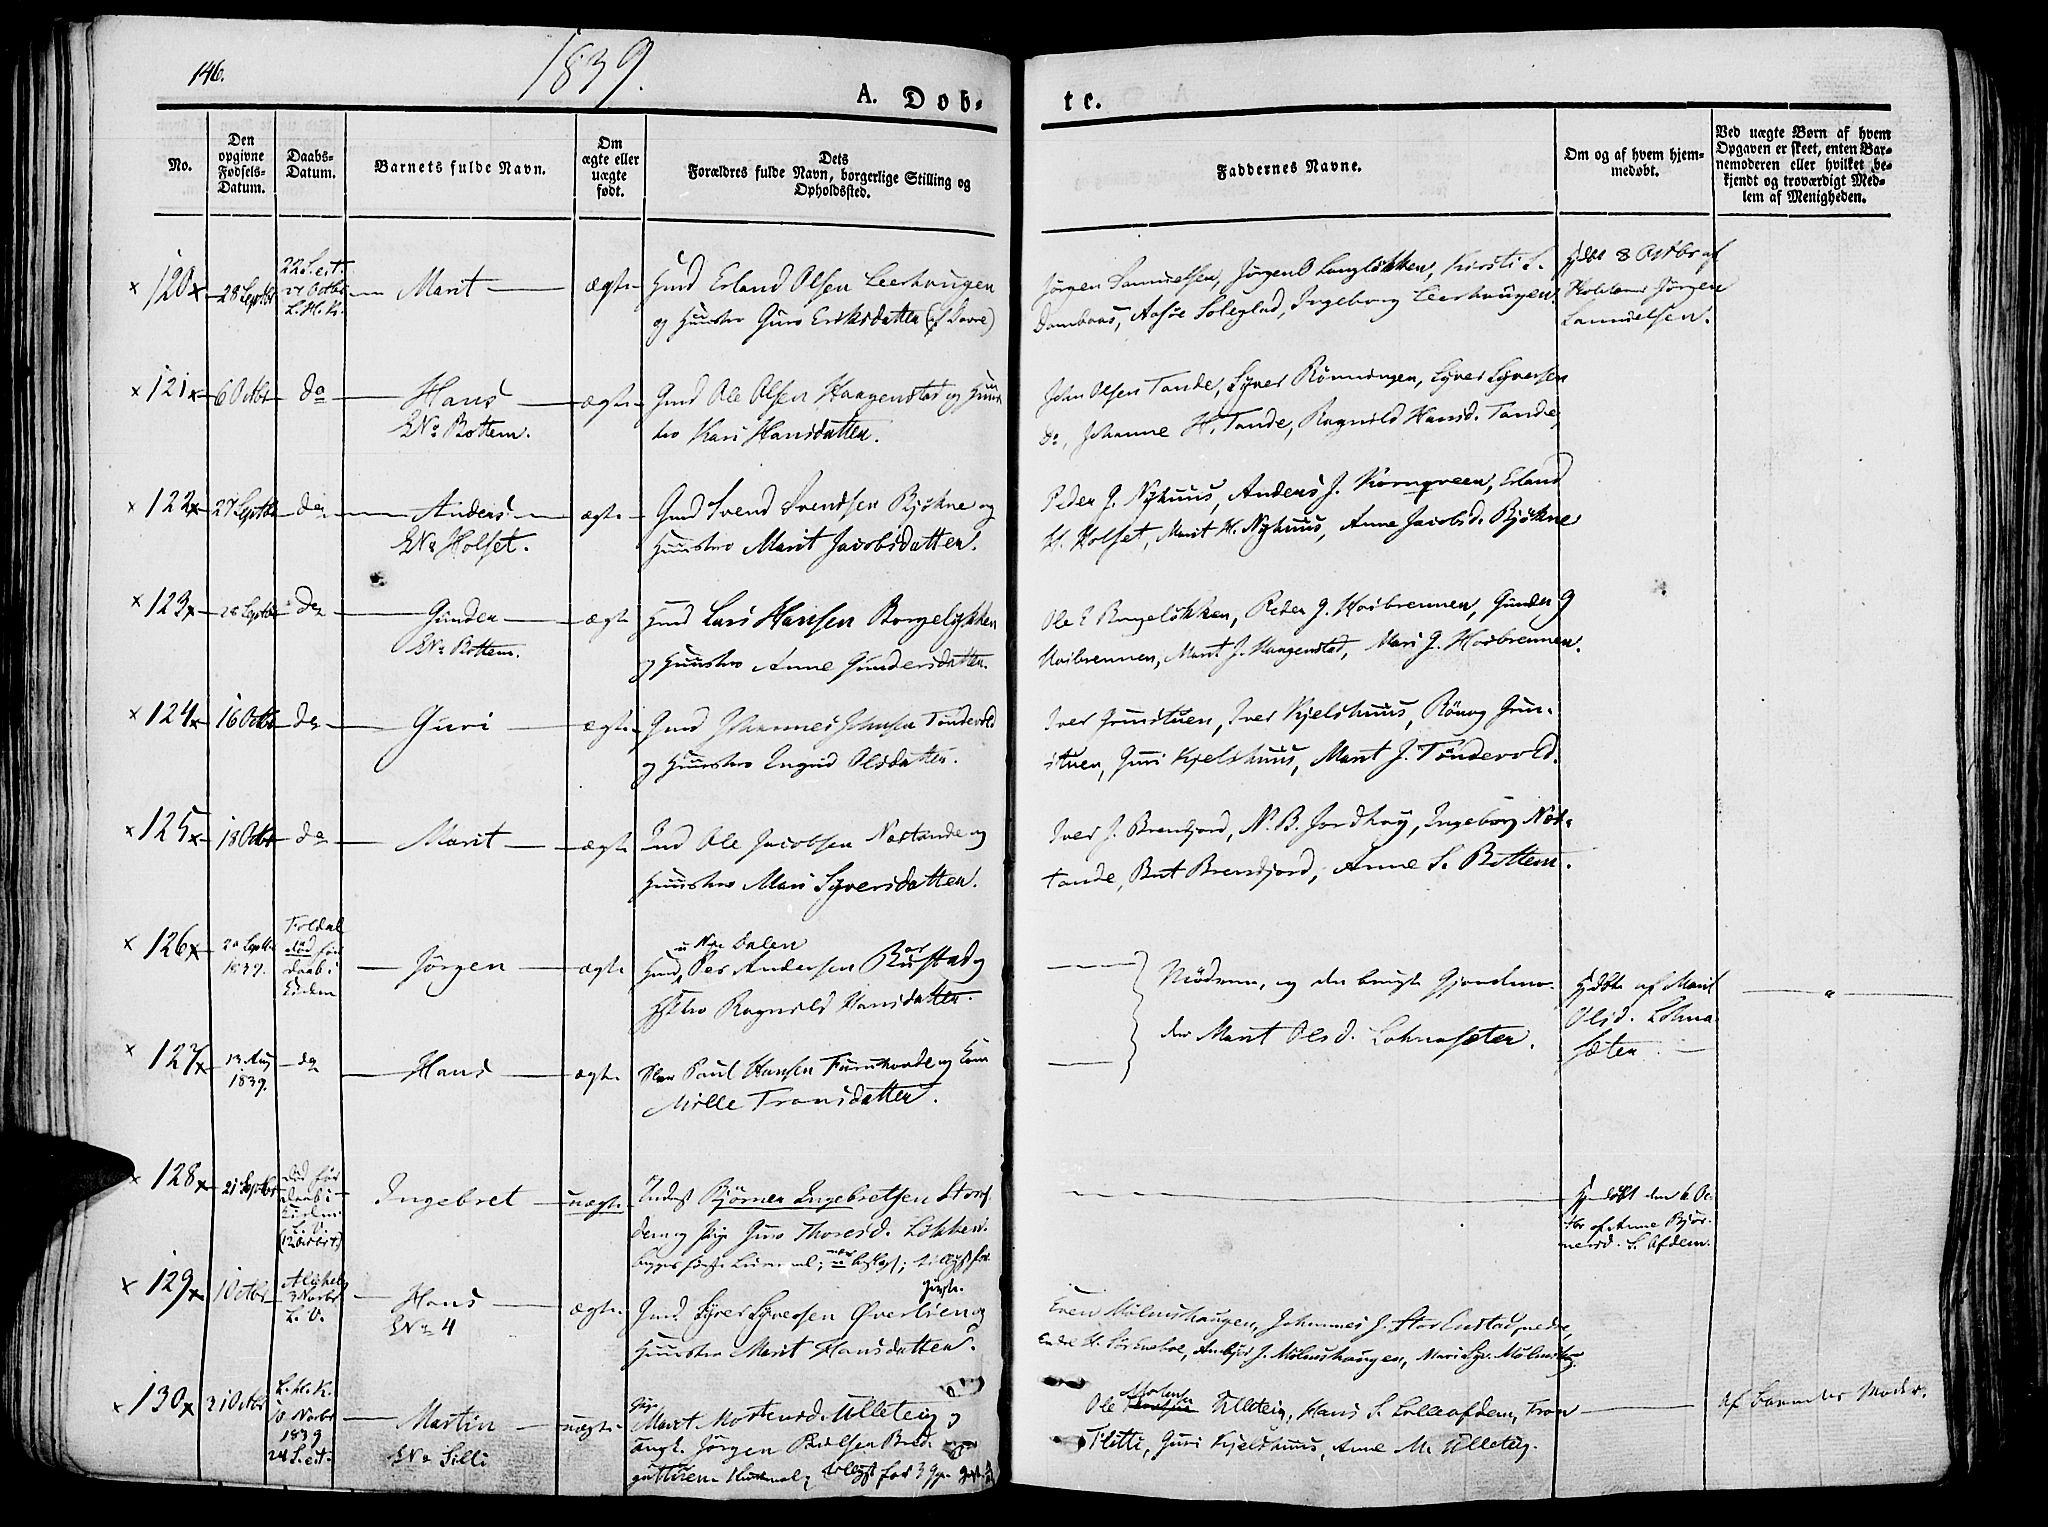 146.
1839.
A. Döb-
te.
No.
Den
opgivne
Fødsels-
Datum.
Daabs-
Datum.
Barnets fulde Navn.
Om
ægte eller
uægte
født.
Dets
Forældres fulde Navn, borgerlige Stilling og
Opholdssted.
Faddernes Navne.
Om og af hvem hjem-
medøbt.
Ved uægte Børn af hvem
Opgaven er skeet, enten Bar-
nemoderen eller hvilket be-
kjendt og troværdigt Med-
lem af Menigheden.
x 120 x 28 Septbr
Marit
ægte
Erland Olsen Leerhaugen
og Huustro Guro Eriksdatter (i Dovre)
Jørgen Samuelsen, Jørgen Langløkken, Kirsti S.
Dombaas, Ingeborg Leerhaugen
8 Octbr af
Jørgen
Samuelsen.
x 121 x 6 Octbr do
Hans
Bottem.
ægte
Gmd Ole Olsen Haagenstad og Huus-
tro Kari Hansdatter.
John Olsen Tande, Syver Rønningen, Syver Syversen
do, Johanne H. Tande, Ragnild Hansd. Tande,
x 122 x 27 Septbr do
Anders
Holset.
ægte
Gmd Svend Svendsen Bjøkne og
Huustro Marit Jacobsdatter.
Peder G. Nyhuus, Anders J. Kornqveen, Erland
H. Holset, Marit H. Nyhuus, Anne Jacobsd. Bjøkne
x 123 x 28 Septbr do
Gunder
Bottem.
ægte
Hmd Lars Hansen Borgeløkken
og Huustro Anne Gundersdatter.
Ole E Borgeløkken, Peder G. Horbrennen, Gunder G
Horbrennen, Marit J. Haagenstad, Mari G. Horbrennen.
x 124 x 16 Octbr do
Guri
ægte
Gmd Johannes Johnsen Tøndevold
og Huustro Ingrid Olsdatter.
Iver Grunstuen, Iver Kjelshuus, Rønog Grun-
stuen, Guri Kjelshuus, Marit J. Tøndevold.
x 125 x 18 Octbr do
Marit
ægte
Ind Ole Jacobsen Nørtande og
Huustro Mari Syversdatter.
Iver J. Brenfjord, N. B. Jordhøy, Ingeborg Nør-
tande, Brit Brendjord, Anne S. Bottem.
x 126 x 20 Septbr
1839.
Foldal
død før
daab i
Kirken
Jørgen
ægte
u Nye Dalen
Hmd Per Andersen
Ragnild Hansdatter.
Mødrene, og den brugte Gjordmo-
der Marit Olsd. Lohnasæter.
Hjdøbt af Marit
Olsd. Lohna-
sæter.
x 127 x 13 Aug
1839.
do
Hans
ægte
Paul Hansen Furuhovde og Kone
Mille Tronsdatter.
x 128 x 21 Septbr
Død før
daab i
Kirken.
L. V.
Ingebret
uægte
Bjørner Ingebretsen
Guro Thoresd. Løkken.
Hjemdøbt den 6 Oc-
tbr af Anne Bjør-
nersd. S. Afdem.
x 129 x 1 Octbr
3 Novbr
L. V.
Hans
No 4
ægte
Gmd. Syver Syversen Øverlien og
Huustro Marit Hansdatter.
Even Mølmshaugen, Johannes J. Storlenstad nedre,
Anbjør J. Mølmshaugen, Mari Syv. Mølmshaug
x 130 x 31 Octbr
L. H. K.
10 Novbr
1839
Martin
Silli
uægte
Pige
Marit Mortensd. Ulleteig og
ungk. Jørgen
for 3 Gg.
Ole Ulleteig, Hans S. Lolleafdem, Tron
Flitti, Guri Kjelshuus, Anne M. Ulleteig.
Af Barnets Moder.